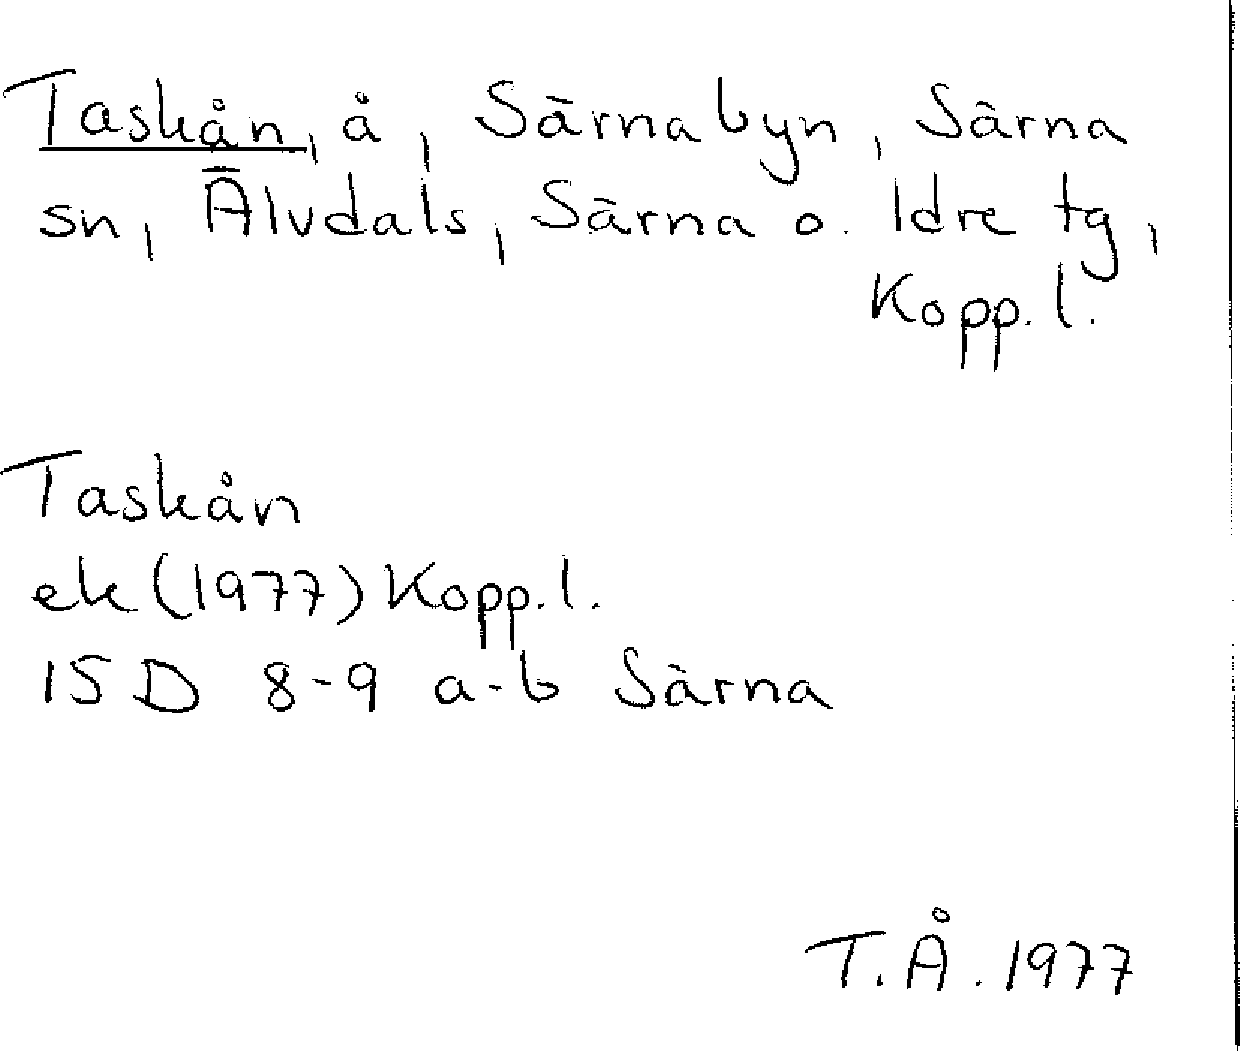 Taskån, å, Särnabyn, Särna
sn, Älvdals, Särna o. Idre tg,
Kopp. l.
Taskån
ek (1977) Kopp. l.
15 D 8-9 a-b Särna
T.Å. 1977